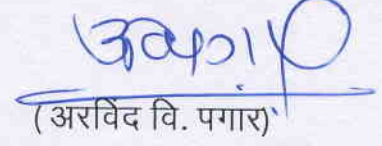 (अरविंद वि. पगार)